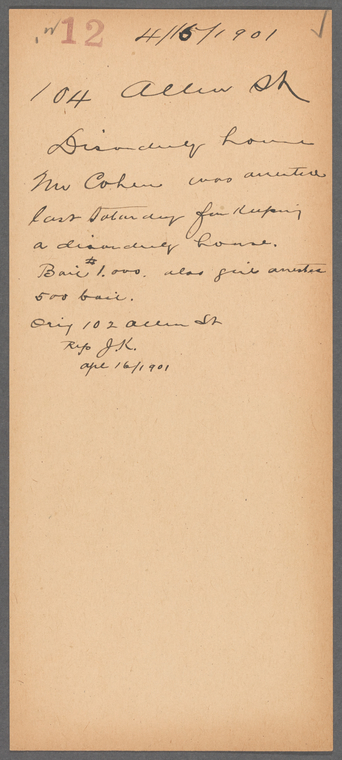 12 4/16/1901
104 Allen St
Disorderly house
Mr Cohen was arrested
last Saturday for keeping
a disorderly house.
Bail $1.000. also girl arrested
500 bail.
Orig 102 Allen St
Rep J.K.
Apl 16/1901